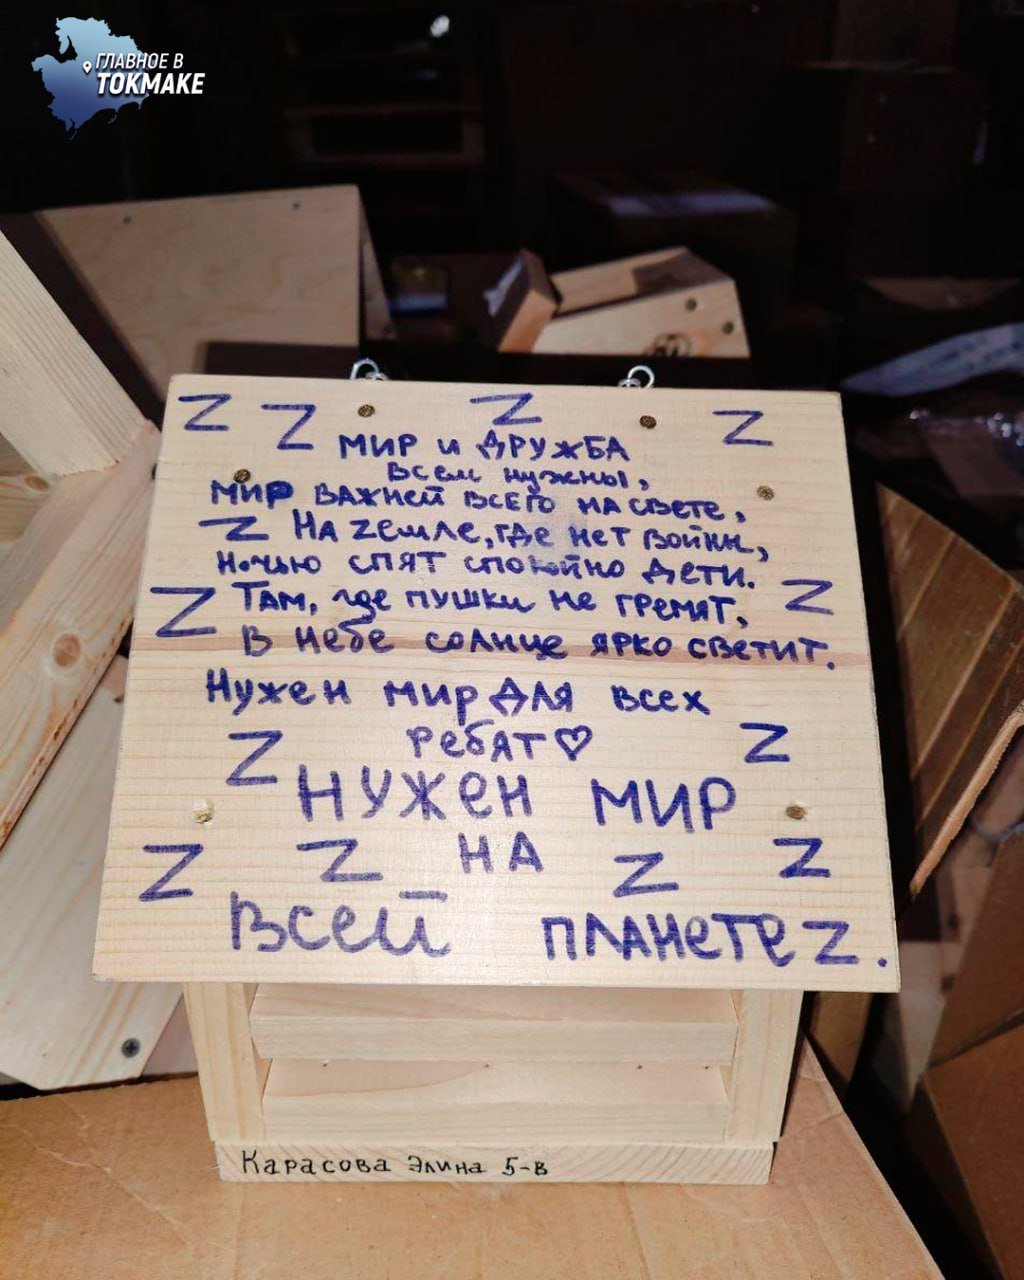 ГЛАВНОЕ В
ТОКМАКЕ
Z Z Z Z
МИР И ДРУЖБА
всем нужны,
МИР ВАЖНЕЙ ВСЕГО НА СВЕТЕ,
Z НА ZЕМЛЕ, ГДЕ НЕТ ВОЙНЫ,
Ночью СПЯТ СПОКОЙНО ДЕТИ.
Z ТАМ, где ПУШКИ Не ГРЕМЯТ, Z
В Небе СОЛНЦЕ ЯРКО СВЕТИТ.
Нужен МИР ДЛЯ ВСЕХ
Z РЕБЯТ♡ Z
НУЖЕН МИР
Z Z НА Z Z
ВСЕЙ ПЛАНЕТЕ Z.
Карасова Элина 5-в